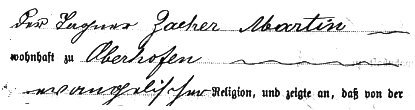 Der Tagner Zacher Martin
wohnhaft zu Oberhofen
evangelischer Religion, und zeigte an, daß von der